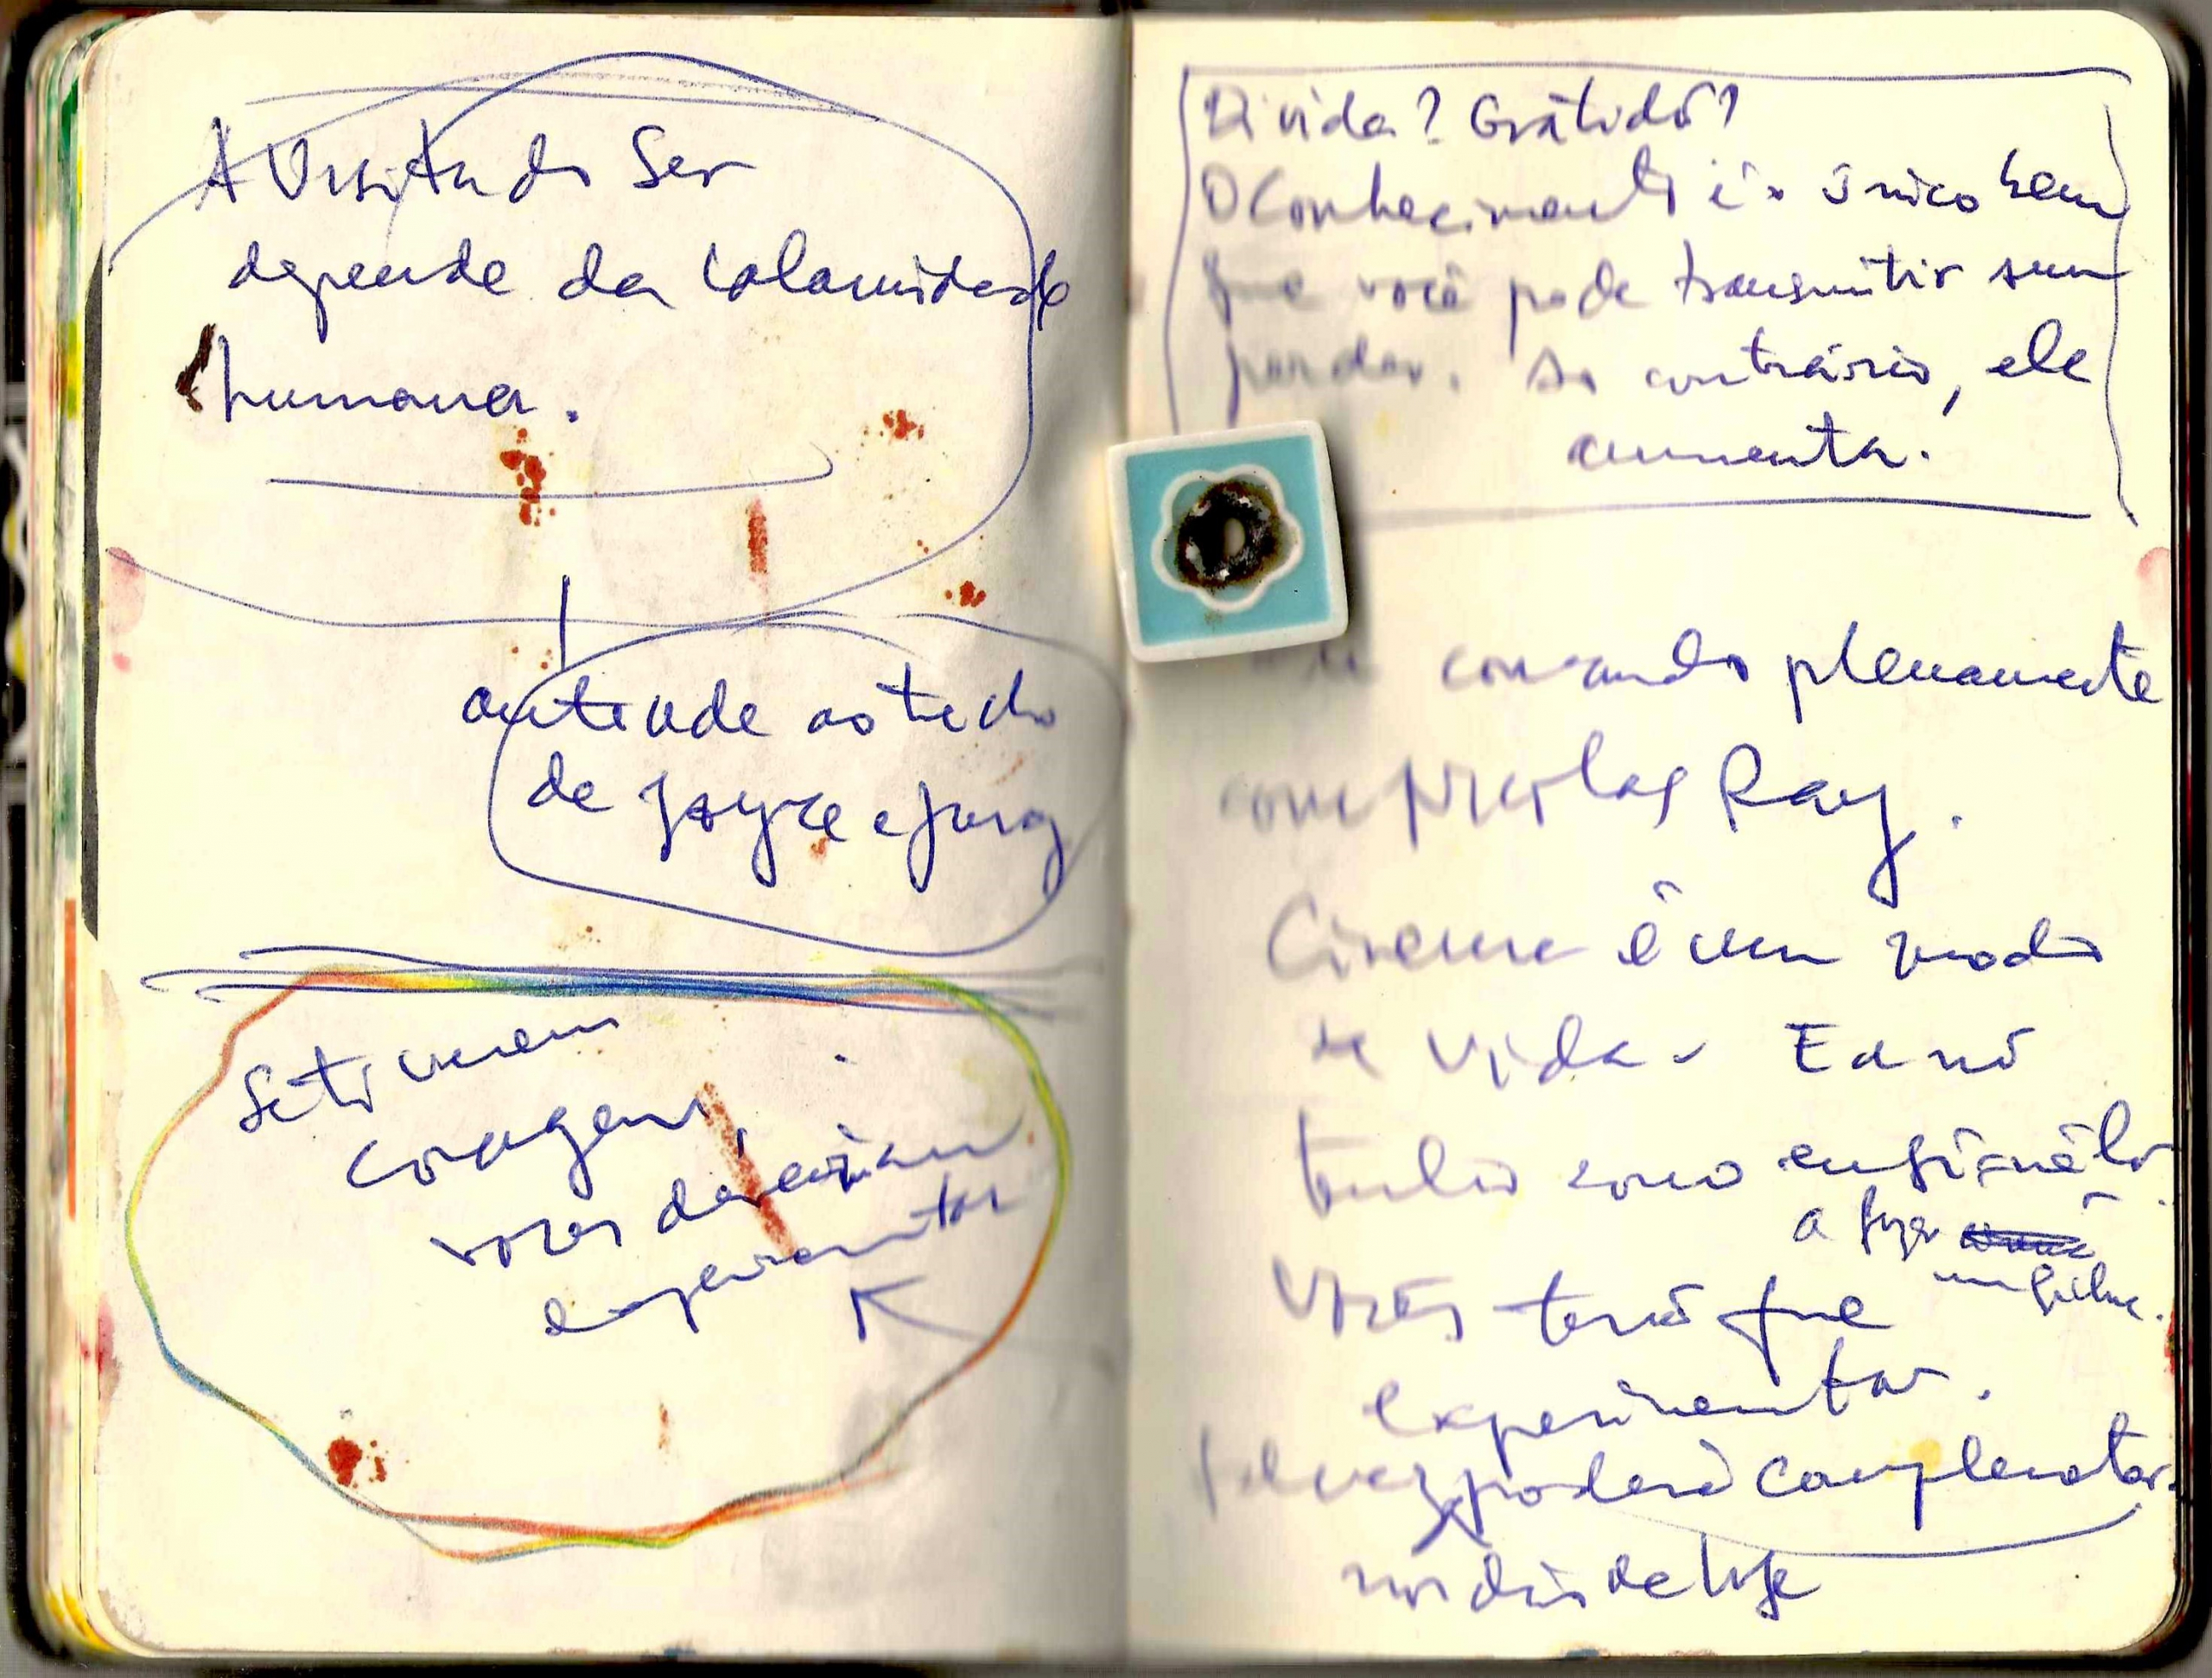 A Visita do Ser
depende da calamidade
humana.
de Joyce e Jung
Se tiverem
coragem,
vocês deveriam
experimentar
Dívida? Gratidão?
O Conhecimento é o único bem
que você pode transmitir sem
perder. Ao contrário, ele
aumenta.
comando plenamente
com Nicolas Ray.
Cinema é um modo
de vida. E a nó
tenho como ensiná-lo.
a fazer
um filme.
Vocês terão que
experimentar.
talvez poderá complementar
nos dias de hoje